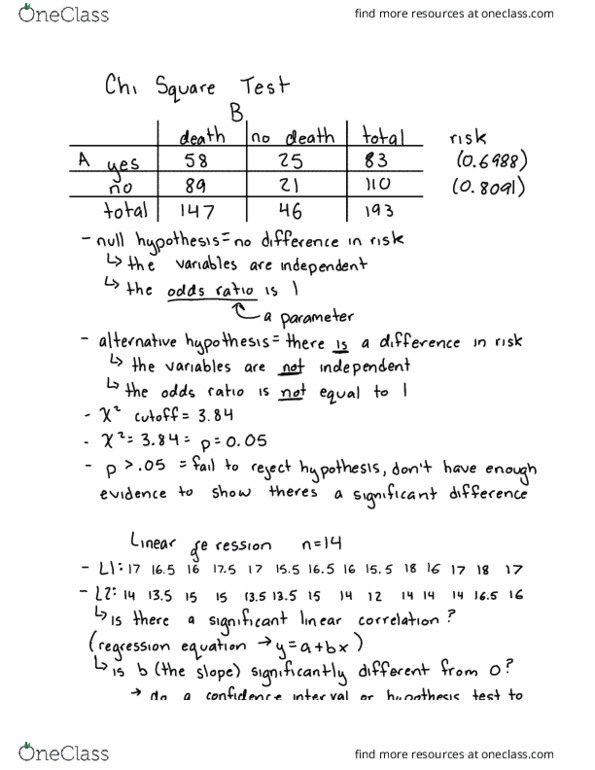 OneClass
find more resources at oneclass.com
Chi Square Test
B
death no death total risk
A yes 58 25 83 (0.6988)
no 89 21 110 (0.8091)
total 147 46 193
- null hypothesis = no difference in risk
↳ the variables are independent
↳ the odds ratio is 1
a parameter
- alternative hypothesis = there is a difference in risk
↳ the variables are not independent
↳ the odds ratio is not equal to 1
- X² cutoff = 3.84
- X² = 3.84 = p = 0.05
- p > .05 = fail to reject hypothesis, don't have enough
evidence to show theres a significant difference
Linear ge ression n=14
- L1: 17 16.5 16 17.5 17 15.5 16.5 16 15.5 18 16 17 18 17
- L2: 14 13.5 15 15 13.5 13.5 15 14 12 14 14 14 16.5 16
↳ is there a significant linear correlation?
(regression equation → y = a + bx)
↳ is b (the slope) significantly different from 0?
→ do a confidence interval or hypothesis test to
OneClass
find more resources at oneclass.com